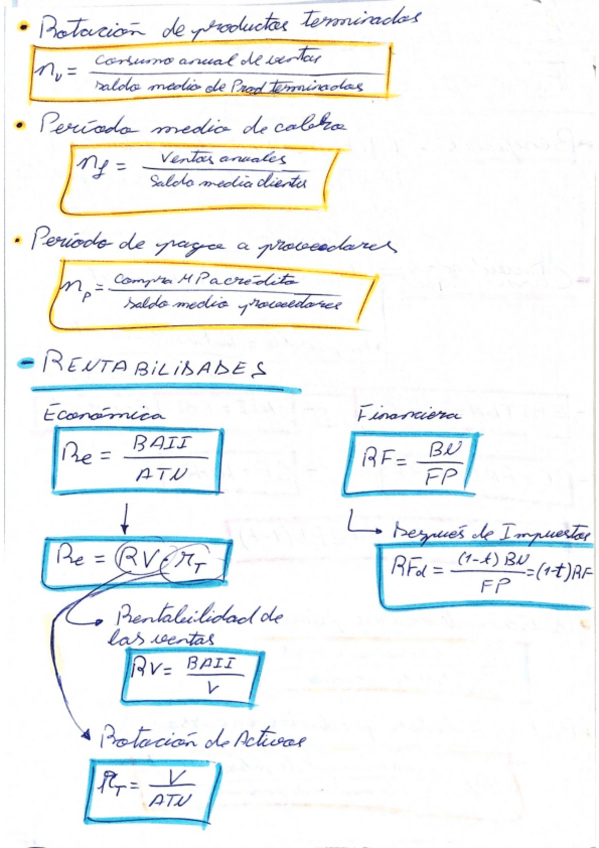 • Rotación de productos terminados
n_v = Consumo anual de ventas / saldo medio de Prod terminados
• Período medio de cobro
n_f = Ventas anuales / Saldo medio clientes
• Período de pago a proveedores
n_p = Compra MP a crédito / saldo medio proveedores
- RENTABILIDADES
Económica
Re = BAII / ATN
↓
Re = RV · r_T
Rentabilidad de
las ventas
RV = BAII / V
Rotación de Activos
r_T = V / ATN
Financiera
RF = BN / FP
Después de Impuestos
RFd = (1-t) BN / FP = (1-t) RF